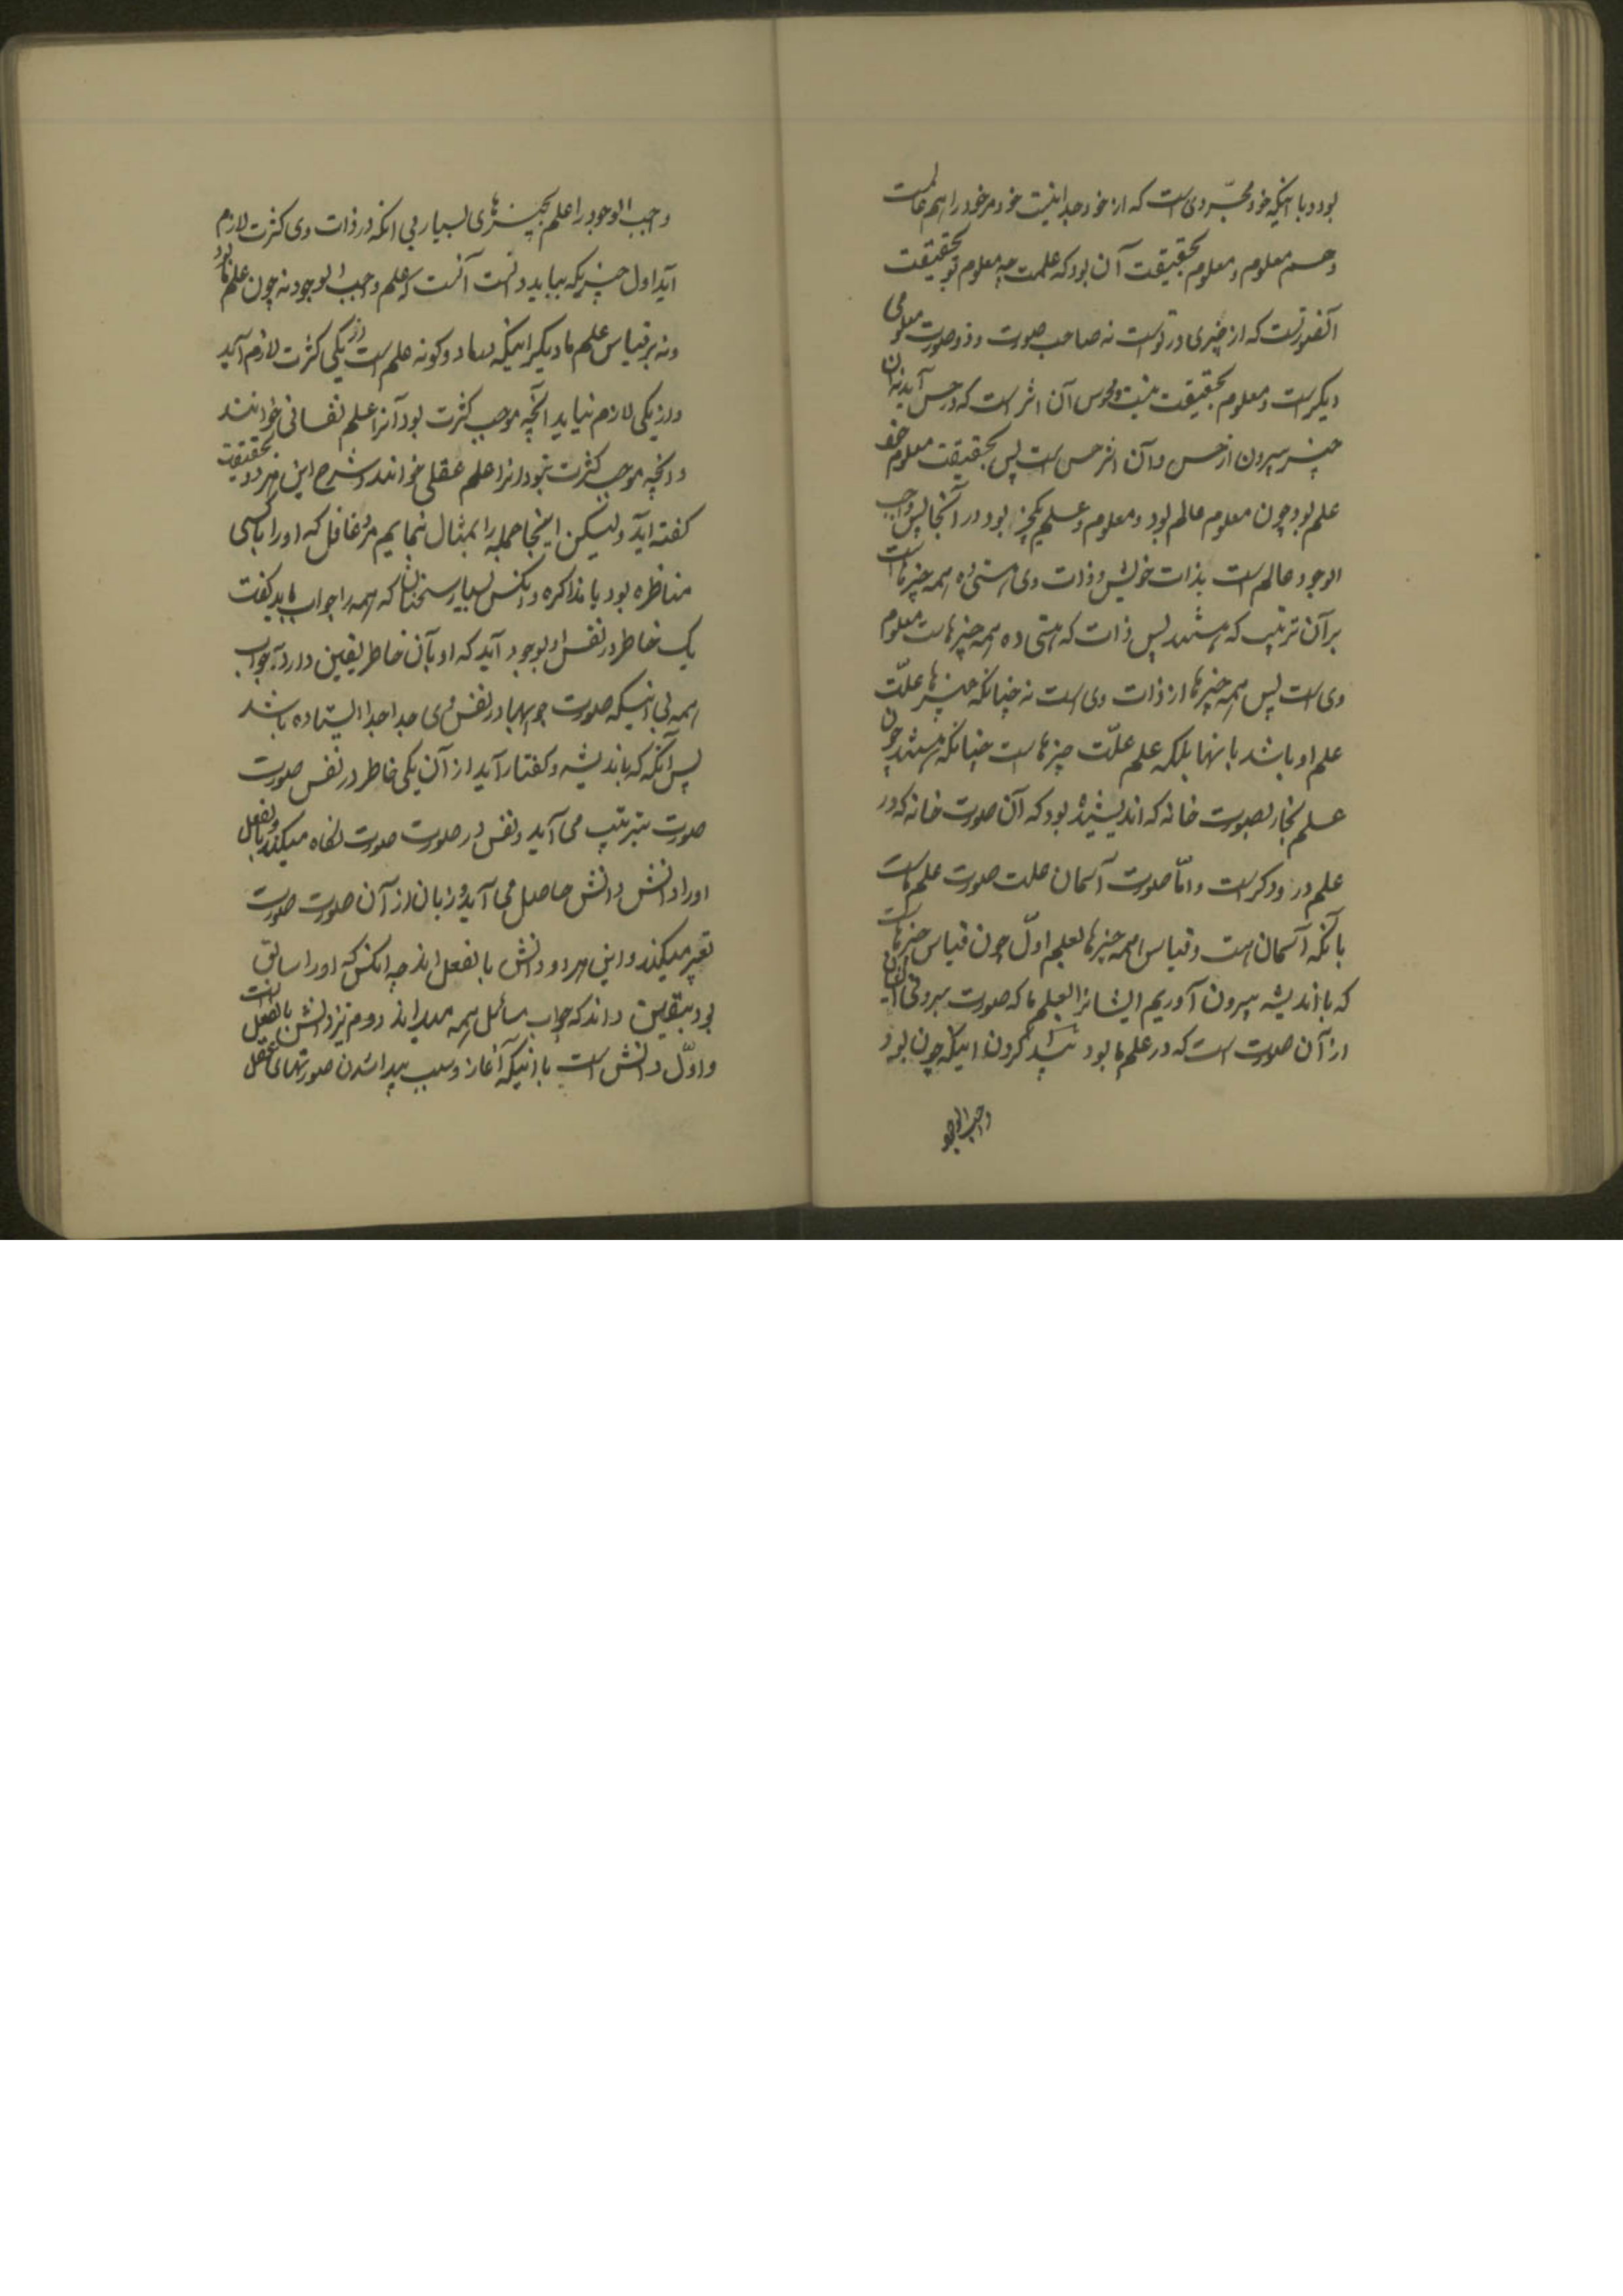 بود و با اینکه خود مجرّد وی است که از خود جدا نیست خود مر خود را هم عالمست
و هم معلوم و معلوم بحقیقت آن بود که علمت چه معلوم تو بحقیقت
آنصورتست که از چیزی در تو است نه صاحب صورت و ذو صورت معلومی
دیگر است و معلوم بحقیقت نیست و محسوس آن اثر است که در حس آید نه آن
چیز بیرون از حس و آن اثر حس است پس بحقیقت معلوم خود
علم بود چون معلوم عالم بود و معلوم و علم یکچیز بود در آنجا پس واجب
الوجود عالم است بذات خویش و ذات وی هستی ده همه چیزهاست
بر آن ترتیب که هستند پس ذات که هستی ده همه چیزهاست معلوم
وی است پس همه چیزها از ذات وی است نه چنانکه چیزها علّت
علم او باشد بانها بلکه علم علّت چیزهاست چنانکه هستند چون
علم نجار بصورت خانه که اندیشیده بود که آن صورت خانه که در
علم درودگر است و امّا صورت آسمان علت صورت علم ماست
بانکه آسمان است و قیاس همه چیزها بعلم اوّل چون قیاس چیزهاست
که باندیشه بیرون آوریم ایشانرا بعلم ما که صورت بیرونی ایشان
از آن صورت است که در علم ما بود پیدا کردن اینکه چون بود
واجب الوجود
واجب الوجود را علم بچیزهای بسیار بی انکه در ذات وی کثرت لازم
آید اول چیزیکه بباید دانست آنست که علم واجب الوجود نه چون علم ما بود
و نه بر قیاس علم ما دیگر اینکه دو گونه علم است از یکی کثرت لازم آید
و از یکی لازم نیاید آنچه موجب کثرت بود آنرا علم نفسانی خوانند
و انچه موجب کثرت نبود انرا علم عقلی خوانند و شرح این هر دو بحقیقت
گفته آید ولیکن اینجا جمله را بمثال نمایم مر عاقل که او را با کسی
مناظره بود یا مذاکره و آنکس بسیار سخنان که همه را جواب باید گفت
یک خاطر در نفس او بوجود آید که او بآن خاطر یقین دارد بجواب
همه بی اینکه صورت جوابها در نفس وی جدا جدا ایستاده باشد
پس آنگه که باندیشه و گفتار آید از آن یکی خاطر در نفس صورت
صورت بترتیب می آید و نفس در صورت صورت نگاه میکند و بالفعل
او را دانش دانش حاصل می آید و زبان از آن صورت صورت
تعبیر میکند و این هر دو دانش بالفعل اند چه انکس که او را سابق
بود بیقین داند که جواب مسائل همه میداند دوم نیز دانش بالفعل است
و اوّل دانش است بانکه آغاز و سبب پیدا شدن صورتهای عقلی